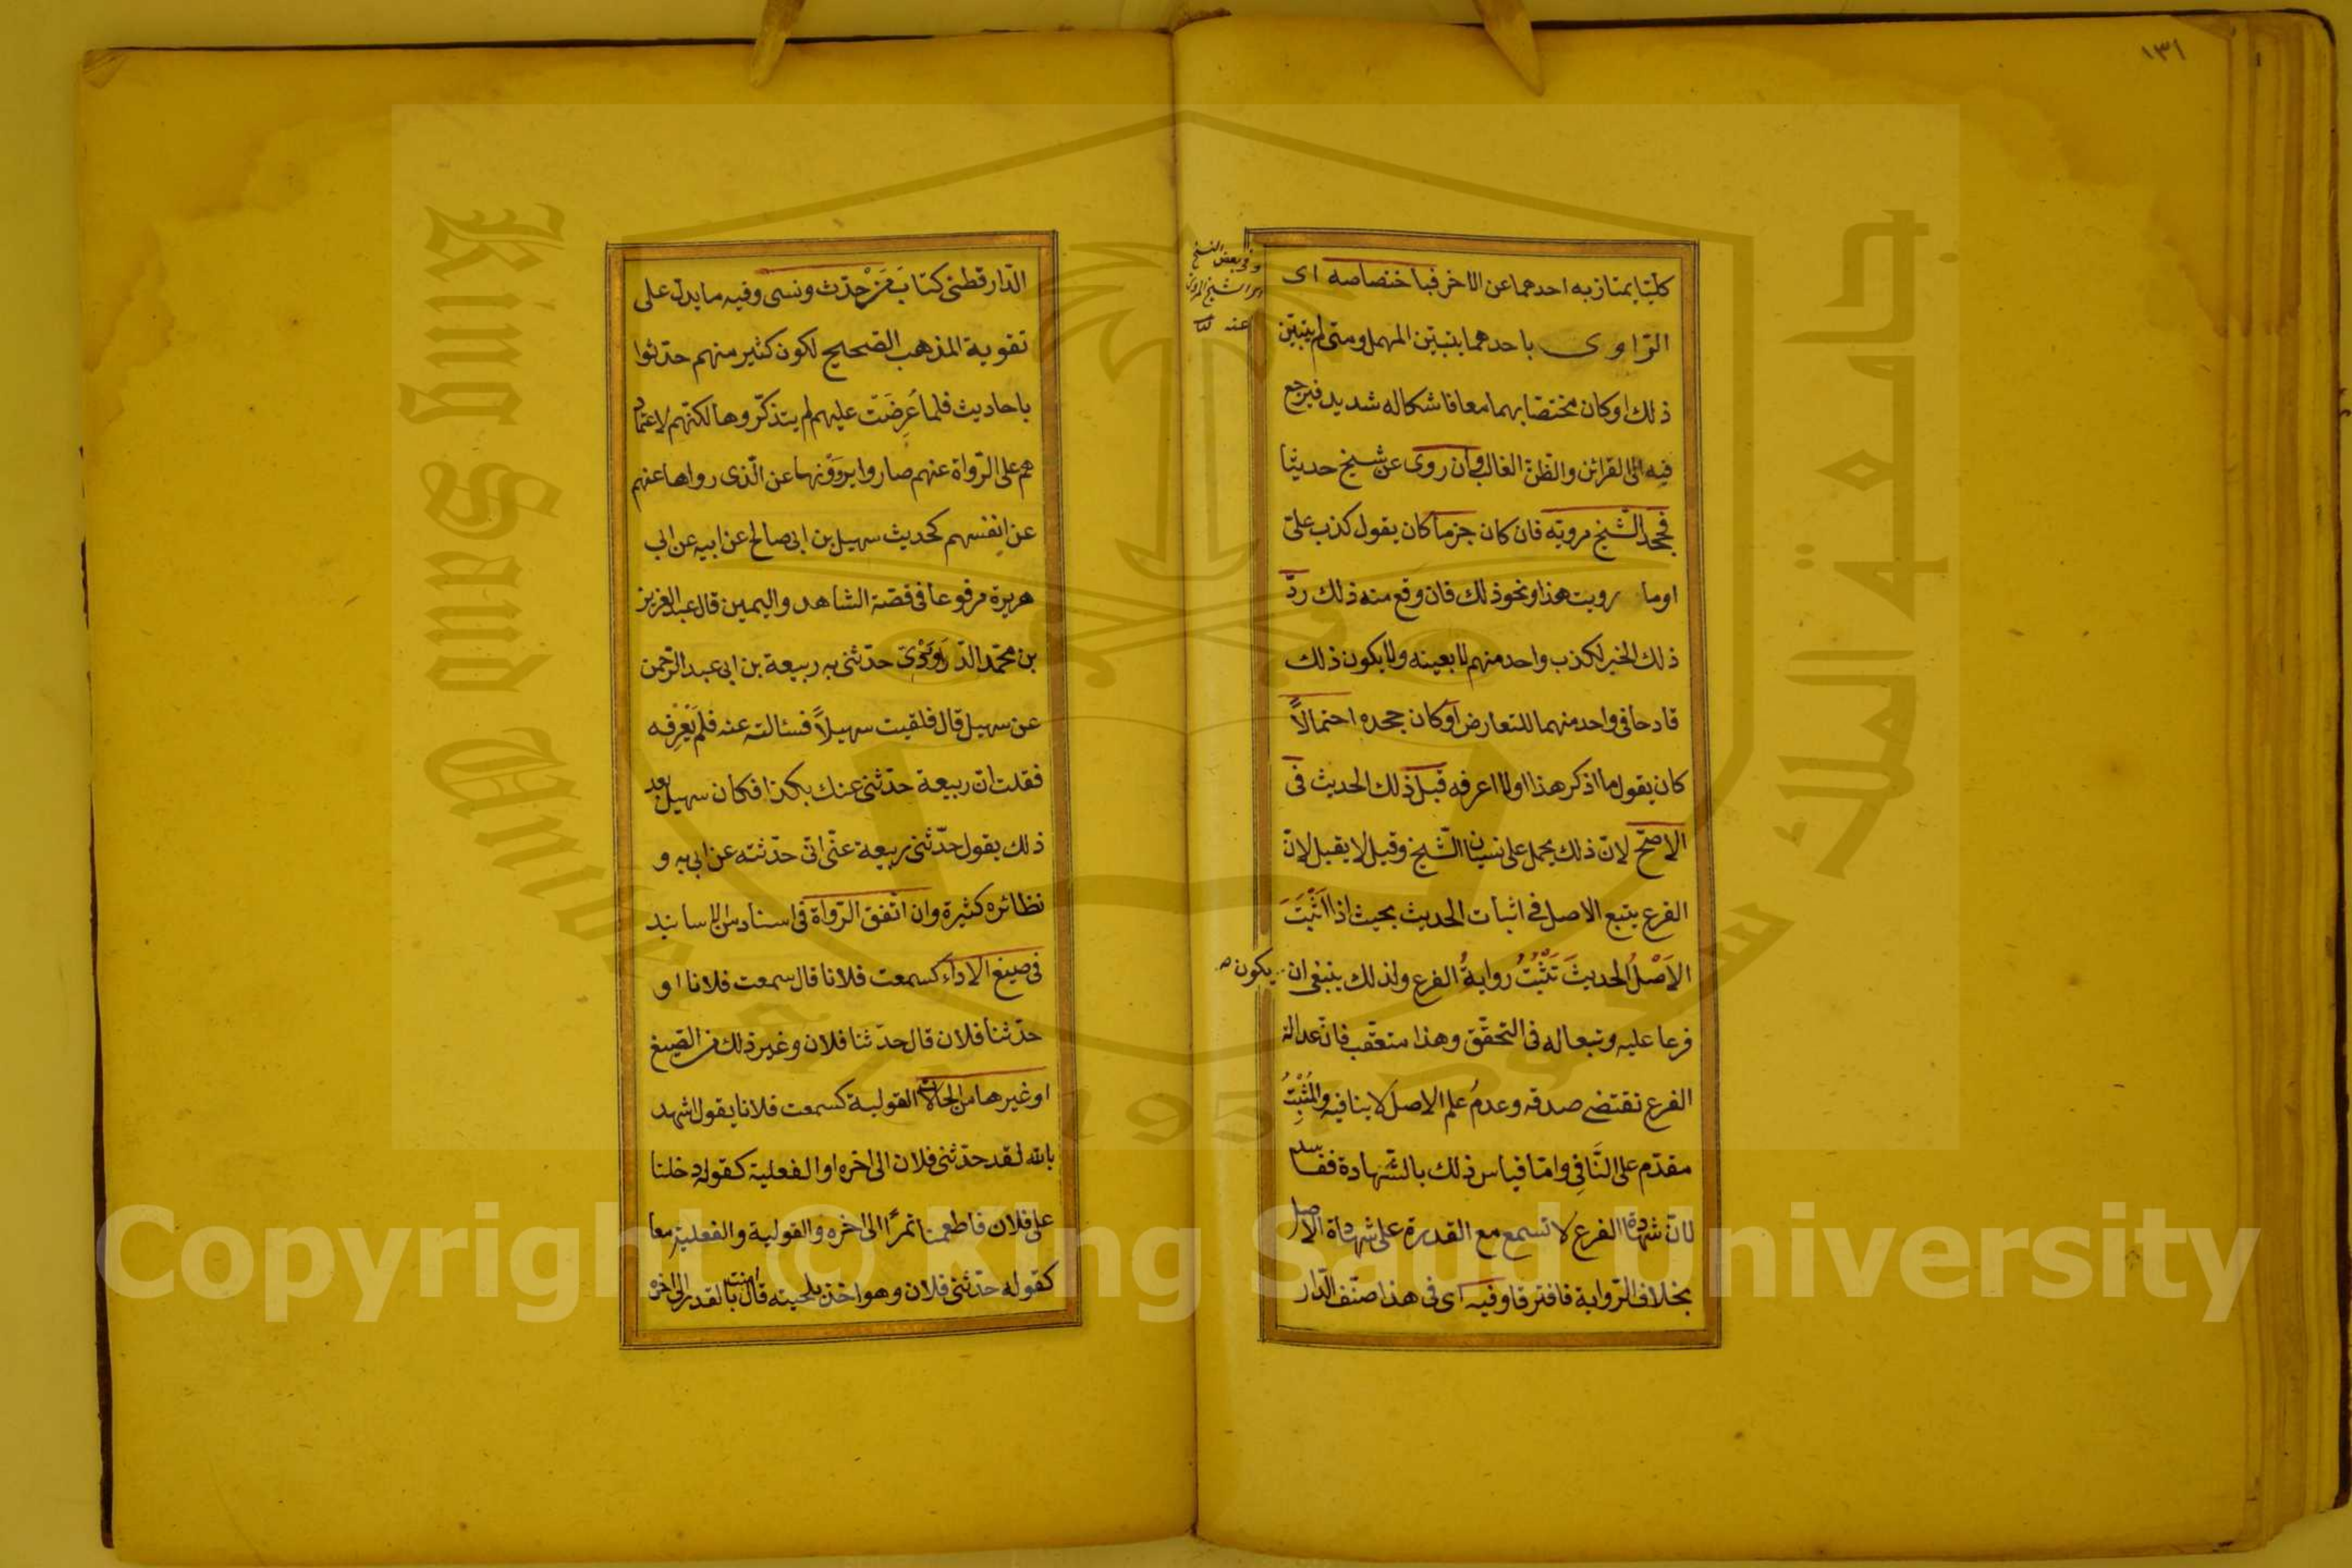 ١٣١
كليا يمتاز به احدهما عن الاخر فباختصاصه اى
الراوى باحدهما يتبين المهمل ومتى لم يتبين
ذلك او كان مختصا بهما معا فاشكاله شديد فيرجع
فيه الى القرائن والظن الغالب وان روى عن شيخ حديثا
فجحد الشيخ مرويه فان كان جزما كان يقول كذب علىّ
او ما رويت هذا ونحو ذلك فان وقع منه ذلك ردّ
ذلك الخبر لكذب واحد منهم لا بعينه ولا يكون ذلك
قادحا فى واحد منهما للتعارض او كان جحده احتمالاً
كان يقول ما اذكر هذا او لا اعرفه قبل ذلك الحديث فى
الاصحّ لانّ ذلك يحمل على نسيان الشّيخ وقيل لا يقبل لانّ
الفرع يتبع الاصل فى اثبات الحديث بحيث اذا اَثْبَتَ
الاَصْلُ الحديثَ تَثْبُتُ روايةُ الفرع ولذلك ينبغى ان يكون
فرعا عليه وتبعا له فى التحقّق وهذا متعقّب فانّ عدالة
الفرع تقتضى صدقه وعدمُ علم الاصل لا ينافيه والمُثْبِتُ
مقدّم على النَّافِى وامّا قياس ذلك بالشّهادة ففاسد
لانّ شهادة الفرع لا تسمع مع القدرة على شهادة الاصل
بخلاف الرّواية فافترقا وفيه اى فى هذا صنّف الدّار
وفى بعض النسخ
عنه
الدّارقطنى كتابَ مَنْ حدّث ونسى وفيه ما يدل على
تقوية المذهب الصّحيح لكون كثير منهم حدّثوا
باحاديث فلما عُرِضَتْ عليهم لم يتذكّروها لكنّهم لاعتماد
هم على الرّواة عنهم صاروا يروونها عن الّذى رواها عنهم
عن انفسهم كحديث سهيل بن ابى صالح عن ابيه عن ابى
هريرة مرفوعا فى قصّة الشاهد واليمين قال عبد العزيز
بن محمّد الدّراوَرْدىّ حدّثنى به ربيعة بن ابى عبد الرّحمن
عن سهيل قال فلقيت سهيلاً فسئالته عنه فلم يَعْرِفه
فقلت انّ ربيعة حدّثنى عنك بكذا فكان سهيل بعد
ذلك يقول حدّثنى ربيعة عنّى انّى حدّثته عن ابى به و
نظائره كثيرة وان اتّفق الرّواة فى اسناد من الاسانيد
فى صيغ الاداء كسمعت فلانا قال سمعت فلانا او
حدّثنا فلان قال حدّثنا فلان وغير ذلك من الصّيغ
او غيرها من الحالات القولية كسمعت فلانا يقول اشهد
بالله لقد حدّثنى فلان الى اخره او الفعلية كقوله دخلنا
على فلان فاطعمنا تمرًا الى اخره والقولية والفعلية معا
كقوله حدّثنى فلان وهو اخذ بلحيته قال امنت بالقدر الى اخره
King Saud University
جامعة الملك سعود
1957
Copyright © King Saud University